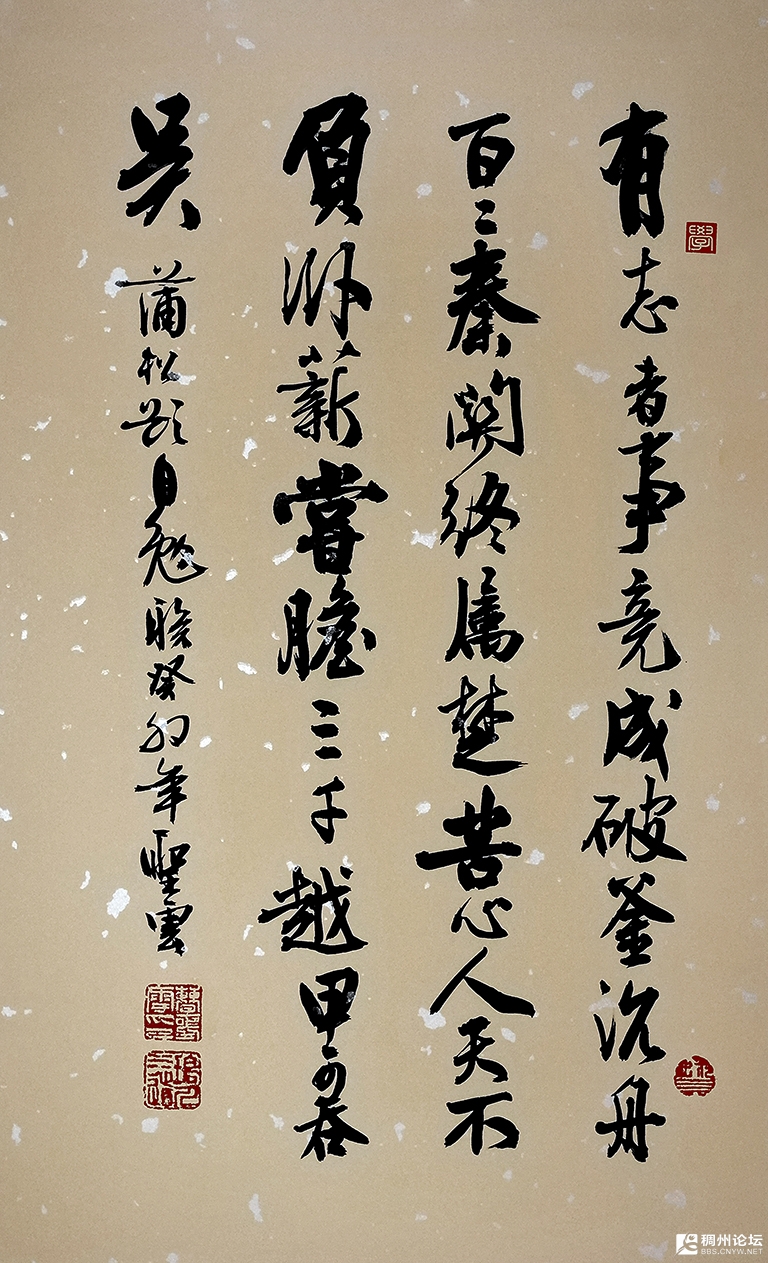 有志者事竟成破釜沉舟
百二秦關終属楚苦心人天不
負卧薪嘗膽三千越甲可吞
吳 蒲松齡自勉聯癸卯年聖雲
學
稠州论坛
BBS.CNYW.NET